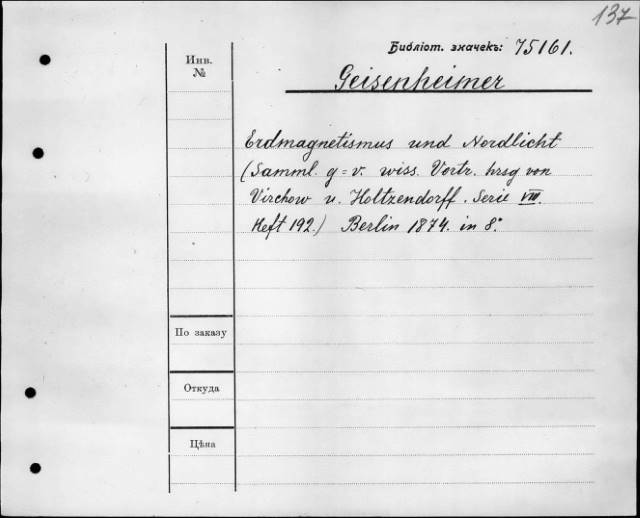 137
Библіот. значекъ: 75161.
Инв.
№
Geisenheimer
Erdmagnetismus und Nordlicht
(Samml. g=v. wiss. Vortr. hrsg von
Virchow u. Holtzendorff. Serie VIII.
Heft 192.) Berlin 1874. in 8.°
По заказу
Откуда
Цѣна